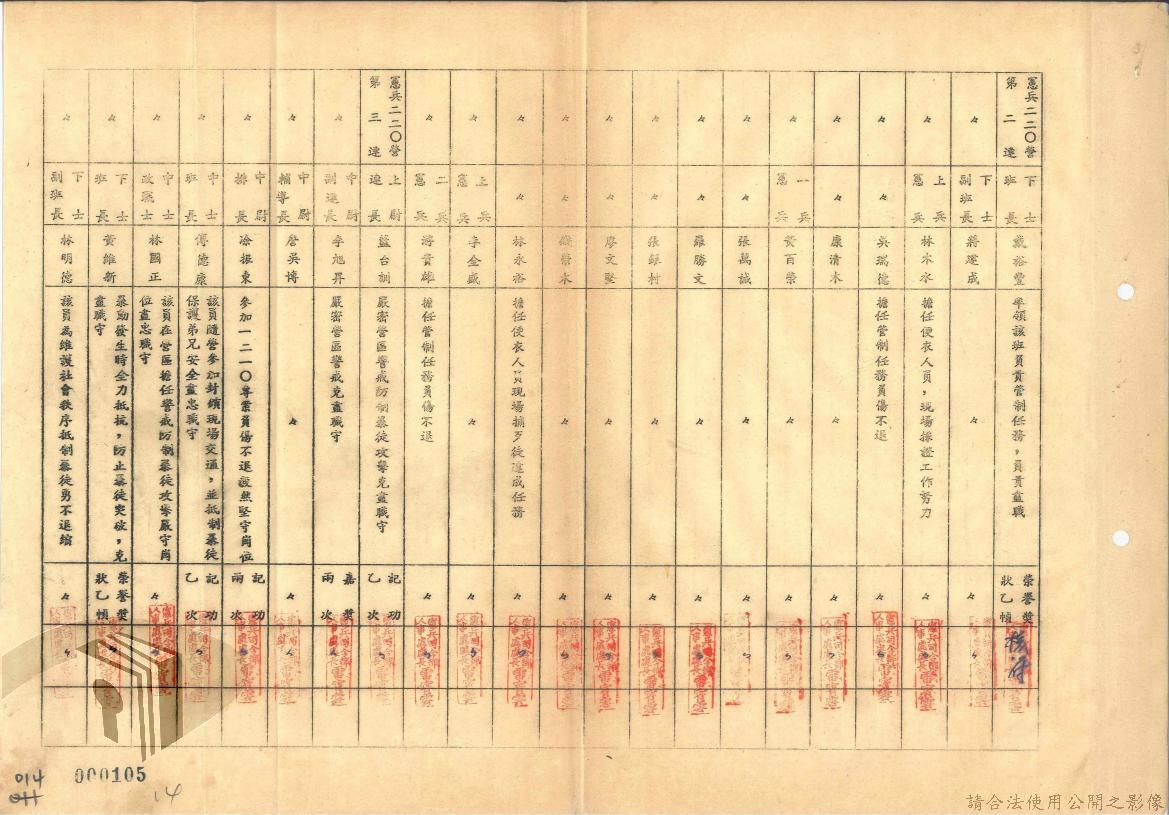 憲兵二二〇營第二連 下士班長 戴裕豐 率領該班員貫管制任務，員貫盡職 榮譽獎狀乙幀 核符
〃 下士副班長 蔣建成 〃 〃 〃
〃 上兵憲兵 林木水 擔任便衣人員，現場採證工作努力 〃 〃
〃 〃 吳瑞德 擔任管制任務員傷不退 〃 〃
〃 〃 康清木 〃 〃 〃
〃 一兵憲兵 黃百榮 〃 〃 〃
〃 〃 張萬誠 〃 〃 〃
〃 〃 羅勝文 〃 〃 〃
〃 〃 張錄村 〃 〃 〃
〃 〃 廖文堅 〃 〃 〃
〃 〃 榮木 〃 〃 〃
〃 〃 林永裕 擔任便衣人員現場捕歹徒達成任務 〃 〃
〃 上兵憲兵 李全盛 〃 〃 〃
〃 二兵憲兵 游貴雄 擔任管制任務員傷不退 〃 〃
憲兵二二〇營第三連 上尉連長 藍台訓 嚴密營區警戒防制暴徒攻擊克盡職守 記功乙次 〃
〃 中尉副連長 李旭昇 嚴密營區警戒克盡職守 嘉獎兩次 〃
〃 中尉輔導長 詹吳博 〃 〃 〃
〃 中尉排長 涂振東 參加一二一〇專案員傷不退毅然堅守崗位 記功兩次 〃
〃 中士班長 傅德康 該員隨營參加封鎖現場交通，並抵制暴徒保護弟兄安全盡忠職守 記功乙次 〃
〃 中士政戰士 林國正 該員在營區擔任警戒防制暴徒攻擊嚴守崗位盡忠職守 〃 〃
〃 下士班長 黃維新 暴動發生時全力抵抗，防止暴徒突破，克盡職守 榮譽獎狀乙幀 〃
〃 下士副班長 林明德 該員為維護社會秩序抵制暴徒勇不退縮 〃 〃
憲兵司令部人事處長雷
014
011
000105
14
請合法使用公開之影像